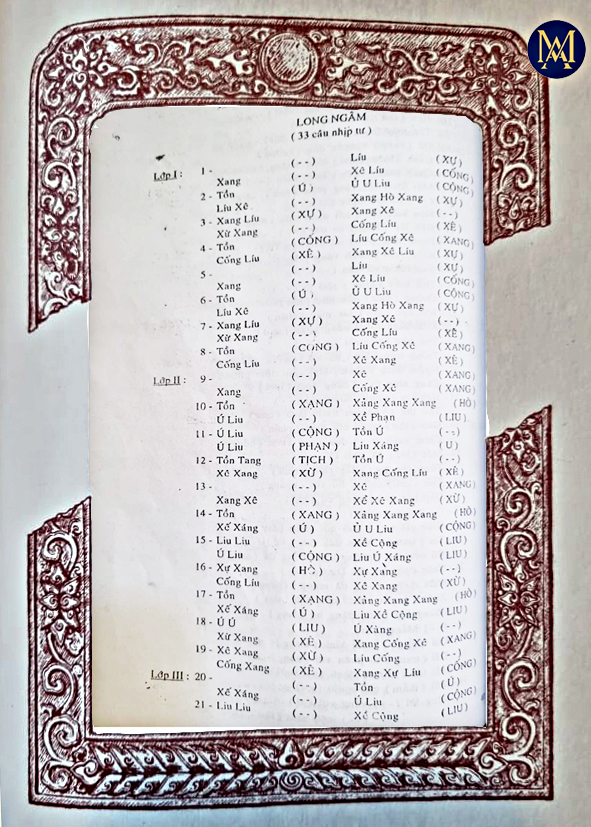 MA
LONG NGÂM
( 33 câu nhịp tư )
Lớp I : 1 - (--) Líu (XỰ)
Xang (--) Xê Líu (CỐNG)
2 - Tồn (Ú) Ú U Liu (CỘNG)
Líu Xê (--) Xang Hò Xang (XỰ)
3 - Xang Líu (XỰ) Xang Xê (--)
Xừ Xang (--) Cống Líu (XÊ)
4 - Tồn (CỐNG) Líu Cống Xê (XANG)
Cống Líu (XÊ) Xang Xê Líu (XỰ)
5 - (--) Líu (XỰ)
Xang (--) Xê Líu (CỐNG)
6 - Tồn (Ú) Ú U Liu (CỘNG)
Líu Xê (--) Xang Hò Xang (XỰ)
7 - Xang Líu (XỰ) Xang Xê (--)
Xừ Xang (--) Cống Líu (XÊ)
8 - Tồn (CỐNG) Líu Cống Xê (XANG)
Cống Líu (--) Xê Xang (XÊ)
Lớp II : 9 - (--) Xê (XANG)
Xang (--) Cống Xê (XANG)
10 - Tồn (XANG) Xảng Xang Xang (HÒ)
Ú Liu (--) Xề Phạn (LIU)
11 - Ú Liu (CỘNG) Tồn Ú (--)
Ú Liu (PHẠN) Liu Xáng (U)
12 - Tồn Tang (TỊCH) Tồn Ú (--)
Xê Xang (XỪ) Xang Cống Líu (XÊ)
13 - (--) Xê (XANG)
Xang Xê (--) Xể Xê Xang (XỪ)
14 - Tồn (XANG) Xảng Xang Xang (HÒ)
Xế Xáng (Ú) Ú U Liu (CỘNG)
15 - Liu Liu (--) Xề Cộng (LIU)
Ú Liu (CỘNG) Liu Ú Xáng (LIU)
16 - Xự Xang (HÒ) Xự Xàng (--)
Cống Líu (--) Xê Xang (XỪ)
17 - Tồn (XANG) Xảng Xang Xang (HÒ)
Xế Xáng (Ú) Liu Xề Cộng (LIU)
18 - Ú Ú (LIU) Ú Xàng (--)
Xừ Xang (XÊ) Xang Cống Xê (XANG)
19 - Xê Xang (XỪ) Líu Cống (--)
Cống Xang (XÊ) Xang Xự Líu (CỐNG)
Lớp III : 20 - (--) Tồn (Ú)
Xế Xáng (--) Ú Liu (CỘNG)
21 - Liu Liu (--) Xề Cộng (LIU)